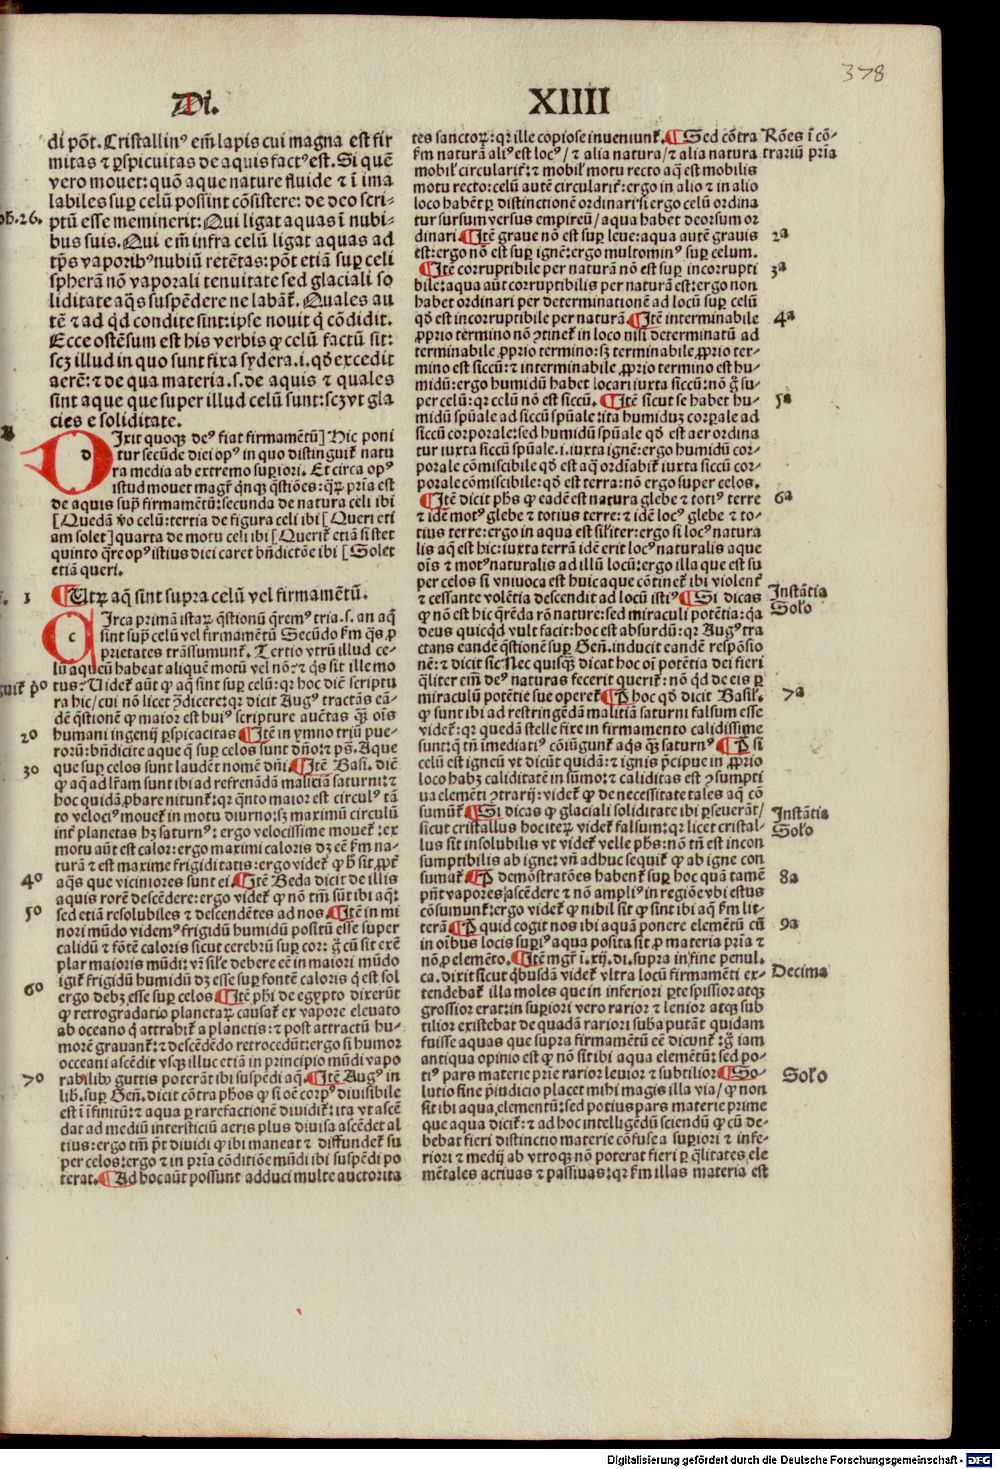 378
Di. XIIII
di põt. Cristallinꝰ em̃ lapis cui magna est fir
mitas ⁊ ꝑspicuitas de aquis factꝰ est. Si quẽ
vero mouet: quõ aque nature fluide ⁊ ĩ ima
labiles suꝑ celũ possint cõsistere: de deo scri-
ptũ esse meminerit: Qui ligat aquas ĩ nubi-
bus suis. Qui em̃ infra celũ ligat aquas ad
tp̃s vaporibꝰ nubiũ retẽtas: põt etiã suꝑ celi
spherã nõ vaporali tenuitate sed glaciali so
liditate aq̃s suspẽdere ne labãt̃. Quales au
tẽ ⁊ ad qͥd condite sint: ipse nouit qͥ cõdidit.
Ecce ostẽsum est his verbis ꝙ celũ factũ sit:
scꝫ illud in quo sunt fixa sydera .i. qd̃ excedit
aerẽ: ⁊ de qua materia .s. de aquis ⁊ quales
sint aque que super illud celũ sunt: scꝫ vt gla
cies e soliditate.
DIxit quoqꝫ deꝰ fiat firmamẽtũ] Hic poni
tur secũde diei opꝰ in quo distinguit̃ natu
ra media ab extremo suꝑiori. Et circa opꝰ
istud mouet magr̃ qͥnqꝫ q̃stiões: q̃ꝝ pria est
de aquis sup̃ firmamẽtũ: secunda de natura celi ibi
[Quedã v̊o celũ: tertia de figura celi ibi [Queri eti
am solet] quarta de motu celi ibi [Querit̃ etiã si stet
quinto q̃re opꝰ istius diei caret bñdictõe ibi [Solet
etiã queri.
¶ Utꝝ aq̃ sint supra celũ vel firmamẽtũ. 1
CIrca primã istaꝝ q̃stionũ q̃remꝰ tria .s. an aq̃
sint sup̃ celũ vel firmamẽtũ Secũdo km̃ q̃s ꝓ
prietates trãssumunt̃. Tertio vtrũ illud ce-
lũ aqueũ habeat aliquẽ motũ vel nõ: ⁊ q̃s sit ille mo
tus: Uidet̃ aũt ꝙ aq̃ sint suꝑ celũ: qꝛ hoc diẽ scriptu
ra hic/ cui nõ licet ꝯdicere: qꝛ dicit Augꝰ tractãs eã-
dẽ q̃stionẽ ꝙ maior est huiꝰ scripture auctas q̃ꝫ oĩs
humani ingenij ꝑspicacitas ¶ Itẽ in ymno triũ pue-
rorũ: bñdicite aque q̃ suꝑ celos sunt dño: ⁊ ps̃. Aque
que suꝑ celos sunt laudẽt nomẽ dñi. ¶ Itẽ Basi. diẽ
ꝙ aq̃ ad lr̃am sunt ibi ad refrenãdã maliciã saturni: ⁊
hoc quidã ꝓbare nitunt̃: qꝛ q̃nto maior est circulꝰ tã
to velociꝰ mouet̃ in motu diurno: sꝫ maximũ circulũ
int̃ planetas hꝫ saturnꝰ: ergo velocissime mouet̃: ex
motu aũt est calor: ergo maximi caloris dꝫ eẽ km̃ na-
turã ⁊ est maxime frigiditatis: ergo videt̃ ꝙ h̊ sit ꝓpt̃
aq̃s que viciniores sunt ei ¶ Itẽ Beda dicit de illis
aquis rorẽ descẽdere: ergo videt̃ ꝙ nõ tm̃ sũt ibi aq̃:
sed etiã resolubiles ⁊ descendẽtes ad nos ¶ Itẽ in mi
nori mũdo videmꝰ frigidũ humidũ positũ esse super
calidũ ⁊ fõtẽ caloris sicut cerebriũ suꝑ cor: g̊ cũ sit exẽ
plar maioris mũdi: vr̃ sil̃e debere eẽ in maiori mũdo
igit̃ frigidũ humidũ dꝫ esse suꝑ fontẽ caloris qͥ est sol
ergo debꝫ esse suꝑ celos ¶ Itẽ phi de egypto dixerũt
ꝙ retrogradatio planetaꝝ causat̃ ex vapore eleuato
ab oceano qͥ attrahit̃ a planetis: ⁊ post attractũ hu-
morẽ grauant̃: ⁊ descẽdẽdo retrocedũt: ergo si humor
occeani ascẽdit vsqꝫ illuc etiã in principio mũdi vapo
rabilibꝰ guttis poterãt ibi suspẽdi aq̃. ¶ Itẽ Augꝰ in
lib. suꝑ Geñ. dicit cõtra phos ꝙ si oẽ corpꝰ diuisibile
est ĩ ĩfinitũ: ⁊ aqua ꝑ rarefactionẽ diuidit̃: ita vt ascẽ
dat ad mediũ intersticiũ aeris plus diuisa ascẽdet al
tius: ergo tm̃ pt̃ diuidi ꝙ ibi maneat ⁊ diffundet̃ su
per celos: ergo ⁊ in pria cõditiõe mũdi ibi suspẽdi po
terat. ¶ Ad hoc aũt possunt adduci multe auctorita
ob. 26.
20
30
40
50
60
70
tes sanctoꝝ: qꝛ ille copiose inueniunt̃. ¶ Sed cõtra
km̃ naturã aliꝰ est locꝰ/ ⁊ alia natura/ ⁊ alia natura
mobil̃ circularit̃: ⁊ mobil̃ motu recto aq̃ est mobilis
motu recto: celũ autẽ circularit̃: ergo in alio ⁊ in alio
loco habẽt ꝑ distinctionẽ ordinari si ergo celũ ordina
tur sursum versus empireũ/ aqua habet deorsum or
dinari. ¶ Itẽ graue nõ est suꝑ leue: aqua autẽ grauis
est: ergo nõ est suꝑ ignẽ: ergo multominꝰ suꝑ celum.
¶ Itẽ corruptibile per naturã nõ est suꝑ incorrupti
bile: aqua aũt corruptibilis per naturã est: ergo non
habet ordinari per determinationẽ ad locũ suꝑ celũ
qd̃ est incorruptibile per naturã. ¶ Itẽ interminabile
ꝓprio termino nõ ꝯtinet̃ in loco nisi determinatũ ad
terminabile ꝓprio termino: sꝫ terminabile ꝓprio ter-
mino est siccũ: ⁊ interminabile ꝓprio termino est hu-
midũ: ergo humidũ habet locari iuxta siccũ: nõ g̊ su-
per celũ: qꝛ celũ nõ est siccũ. ¶ Itẽ sicut se habet hu-
midũ spũale ad siccũ spũale: ita humiduꝫ corꝑale ad
siccũ corporale: sed humidũ spũale qd̃ est aer ordina
tur iuxta siccũ spũale .i. iuxta ignẽ: ergo humidũ cor-
porale cõmiscibile qd̃ est aq̃ ordĩabit̃ iuxta siccũ cor-
porale cõmiscibile: qd̃ est terra: nõ ergo super celos.
¶ Itẽ dicit phs̃ ꝙ eadẽ est natura glebe ⁊ totiꝰ terre
⁊ idẽ motꝰ glebe ⁊ totius terre: ⁊ idẽ locꝰ glebe ⁊ to-
tius terre: ergo in aqua est sil̃iter: ergo si locꝰ natura
lis aq̃ est hic: iuxta terrã idẽ erit locꝰ naturalis aque
oĩs ⁊ motꝰ naturalis ad illũ locũ: ergo illa que est su
per celos si vniuoca est huic aque cõtinet̃ ibi violent̃
⁊ cessante volẽtia descendit ad locũ istiꝰ ¶ Si dicas
ꝙ nõ est hic q̃rẽda rõ nature: sed miraculi potẽtia: qꝛ
deus quicqͥd vult facit: hoc est absurdũ: qꝛ Augꝰ tra
ctans eandẽ q̃stionẽ suꝑ Geñ. inducit eandẽ respõsio
nẽ: ⁊ dicit sic Nec quisq̃ꝫ dicat hoc oĩ potẽtia dei fieri
q̃liter em̃ deꝰ naturas fecerit querit̃: nõ qͥd de eis ꝑ
miraculũ potẽtie sue operet̃ ¶ P̃ hoc qd̃ dicit Basil.
ꝙ sunt ibi ad restringẽdã malitiã saturni falsum esse
videt̃: qꝛ quedã stelle fixe in firmamento calidissime
sunt: q̃ tñ imediatiꝰ cõiũgunt̃ aq̃s q̃ꝫ saturnꝰ ¶ P̃ si
celũ est igneũ vt dicũt quidã: ⁊ ignis p̃cipue in ꝓprio
loco habꝫ caliditatẽ in sũmo: ⁊ caliditas est ꝯsumpti
ua elemẽti ꝯtrarij: videt̃ ꝙ de necessitate tales aq̃ cõ
sumũt̃ ¶ Si dicas ꝙ glaciali soliditate ibi ꝑseuerãt/
sicut cristallus hoc iteꝝ videt̃ falsum: qꝛ licet cristal-
lus sit insolubilis vt videt̃ velle phs̃: nõ tñ est incon
sumptibilis ab igne: vñ adhuc sequit̃ ꝙ ab igne con
sumat̃ ¶ P̃ demõstratões habent̃ suꝑ hoc quã tamẽ
pñt vapores ascẽdere ⁊ nõ ampliꝰ in regiõe vbi estus
cõsumunt̃: ergo videt̃ ꝙ nihil sit̃ ꝙ sint ibi aq̃ km̃ lit-
terã ¶ P̃ quid cogit nos ibi aquã ponere elemẽtũ cũ
in oĩbus locis suꝑiꝰ aqua posita sit ꝓ materia pria ⁊
nõ ꝓ elemẽto. ¶ Itẽ mgr̃ ĩ .xij. di. supra in fine penul.
ca. dixit sicut qͥbusdã videt̃ vltra locũ firmamẽti ex-
tendebat̃ illa moles que in inferiori ꝑte spissior atqꝫ
grossior erat: in suꝑiori vero rarior ⁊ lenior atqꝫ sub
tilior existebat de quadã rariori suba putãt quidam
fuisse aquas que supra firmamẽtũ eẽ dicunt̃: g̊ iam
antiqua opinio est ꝙ nõ sit̃ ibi aqua elemẽtũ: sed po-
tiꝰ pars materie prie rarior leuior ⁊ subtilior ¶ So-
lutio sine p̃iudicio placet mihi magis illa via/ ꝙ non
sit̃ ibi aqua elementũ: sed potius pars materie prime
que aqua dicit̃: ⁊ ad hoc intelligẽdũ sciendũ ꝙ cũ de-
bebat fieri distinctio materie cõfuse a suꝑiori ⁊ infe-
riori ⁊ medij ab vtroqꝫ nõ poterat fieri ꝑ q̃litates ele
mẽtales actiuas ⁊ passiuas: qꝛ km̃ illas materia est
Rões ĩ cõ-
trariũ pria
2a
3a
4a
5a
6a
Instãtia
Solo
7a
Instãtia
Solo
8a
9a
Decima
Solo
Digitalisierung gefördert durch die Deutsche Forschungsgemeinschaft - DFG